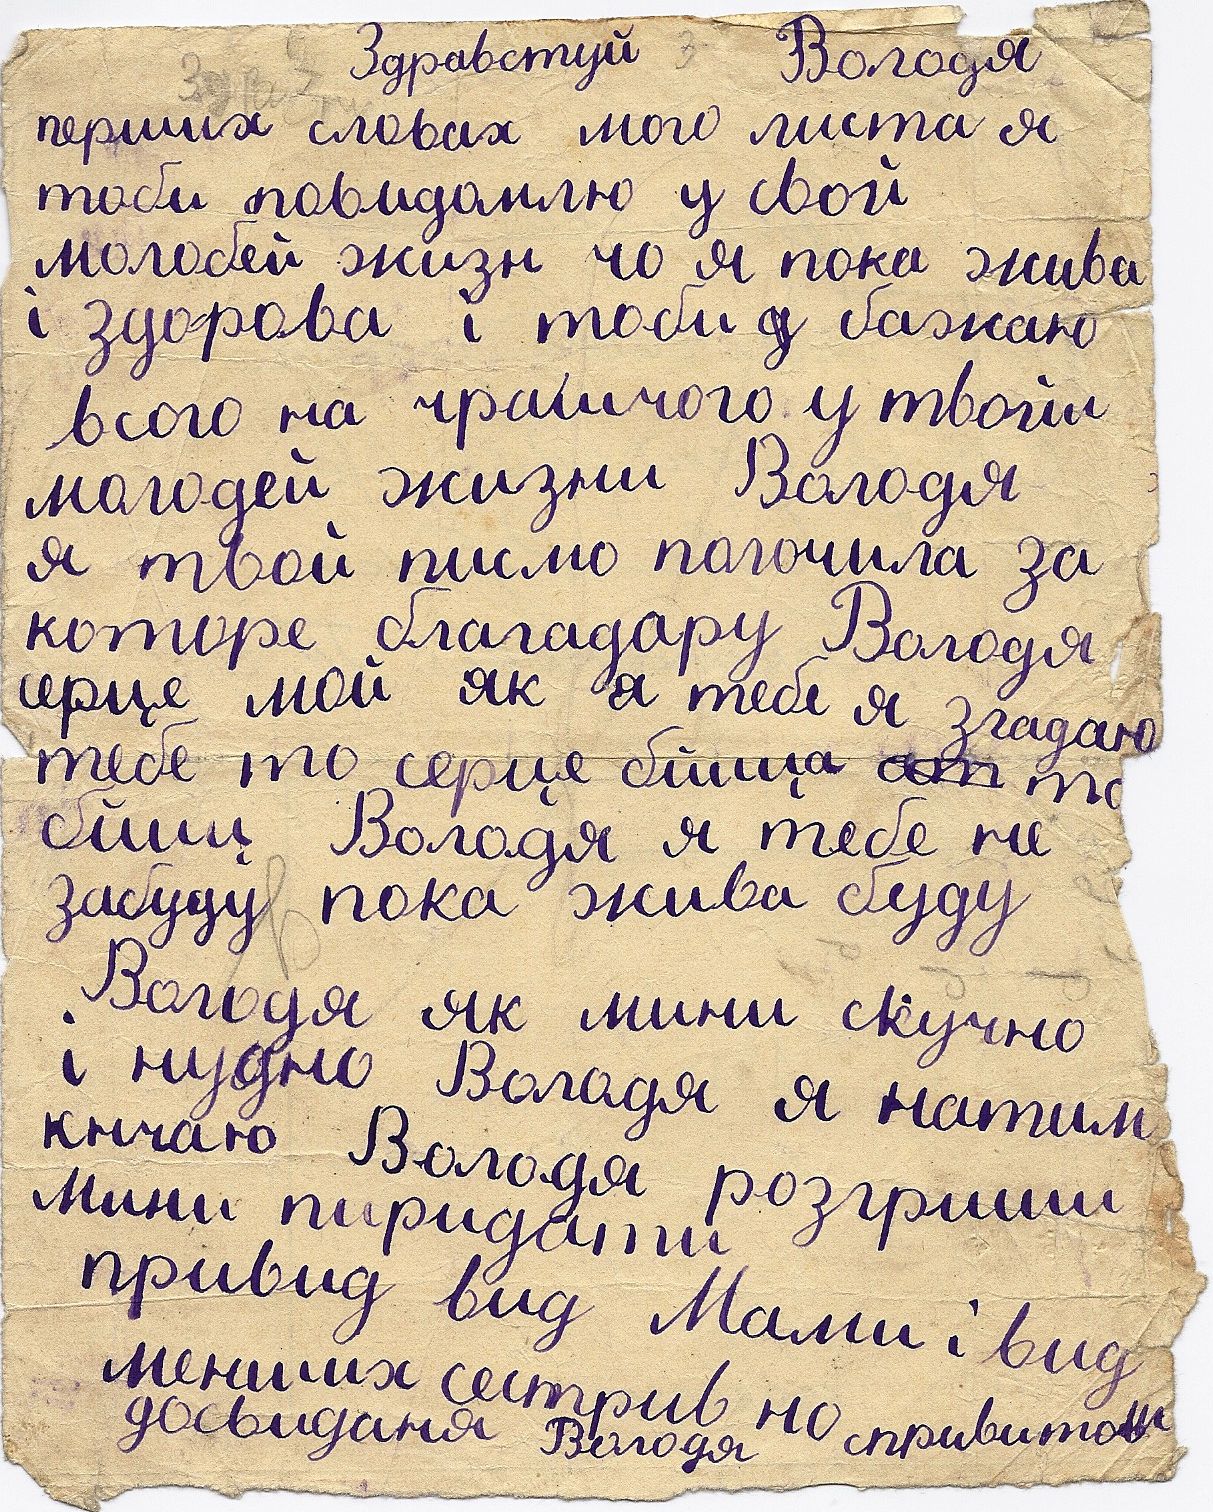 Здравстуй Володя
перших словах мого листа я
тоби повидомлю у свой
молобей жизн чо я пока жива
і здорова і тоби бажаю
всого на чрашчого у твоїм
молодей жизни Володя
я твой писмо полочила за
которе благадару Володя
серце мой як я тебе я згадаю
тебе то серце бішца то
бішц Володя я тебе не
забуду пока жива буду
Володя як мини скучно
і нудно Володя я натим
кнчаю Володя розгриши
мини пиридати
привид вид Мами і вид
менших сестрив но спривитом
досвиданя Володя